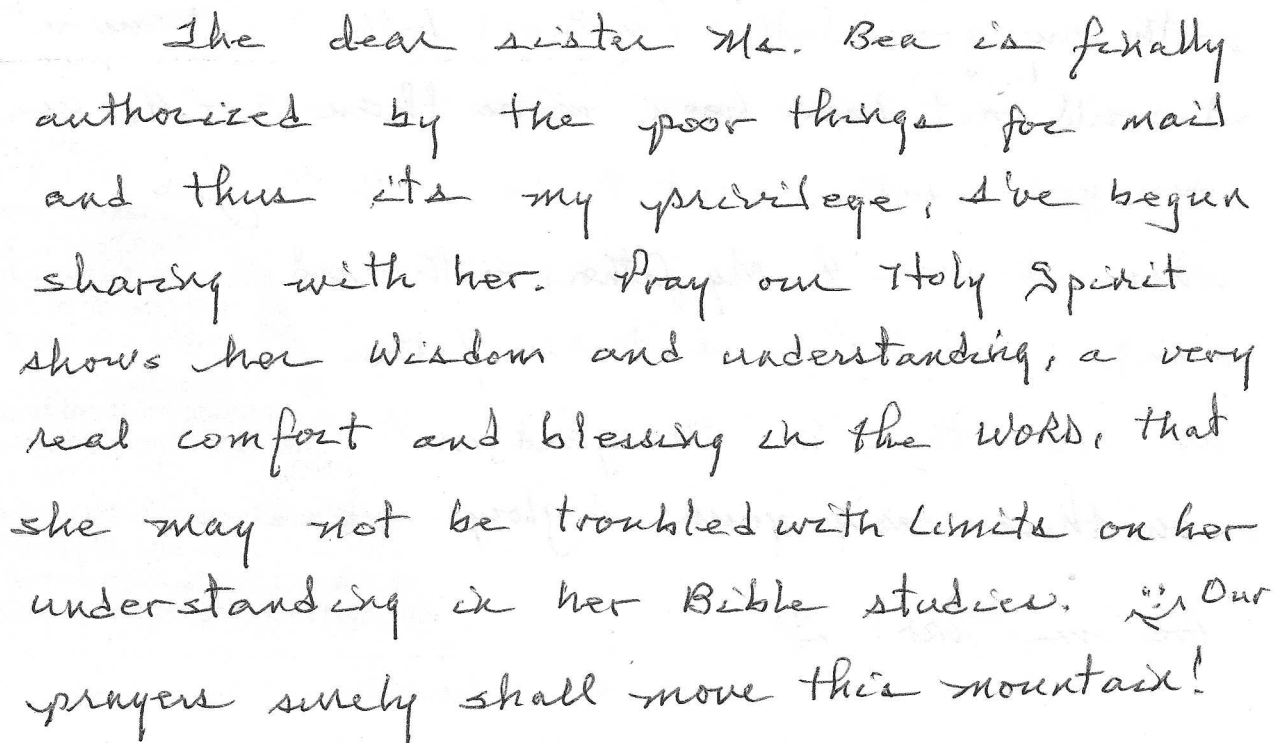 The dear sister Ms. Bea is finally
authorized by the poor things for mail
and thus its my privilege, I've begun
sharing with her. Pray our Holy Spirit
shows her Wisdom and understanding, a very
real comfort and blessing in the WORD, that
she may not be troubled with Limits on her
understanding in her Bible studies. Our
prayers surely shall move this mountain!